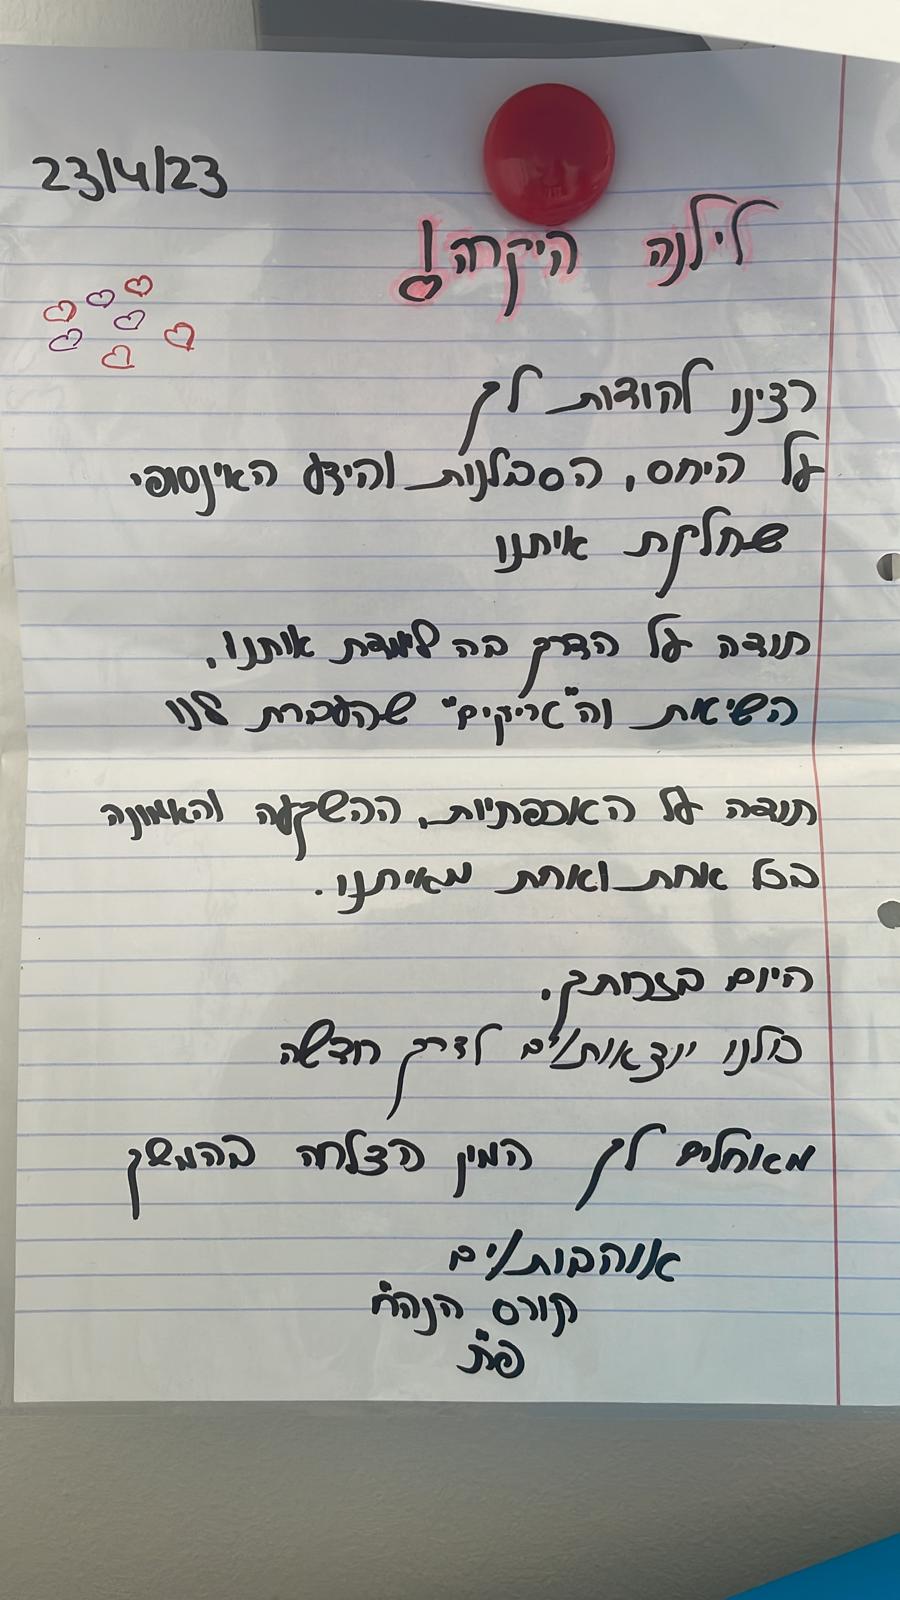 23/4/23
לילנה היקרה!
רצינו להודות לך
על היחס, הסבלנות והידע האינסופי
שחלקת איתנו
תודה על הדרך בה לימדת אותנו,
השיאת וה"אריקים" שהעברת לנו
תודה על האכפתיות, ההשקעה והאמונה
בכל אחת ואחת מאיתנו.
היום בזכותך.
כולנו יוצאות/ים לדרך חדשה
מאחלים לך המון הצלחה בהמשך
אוהבות/ים
קורס הנה"ח
פ"ת